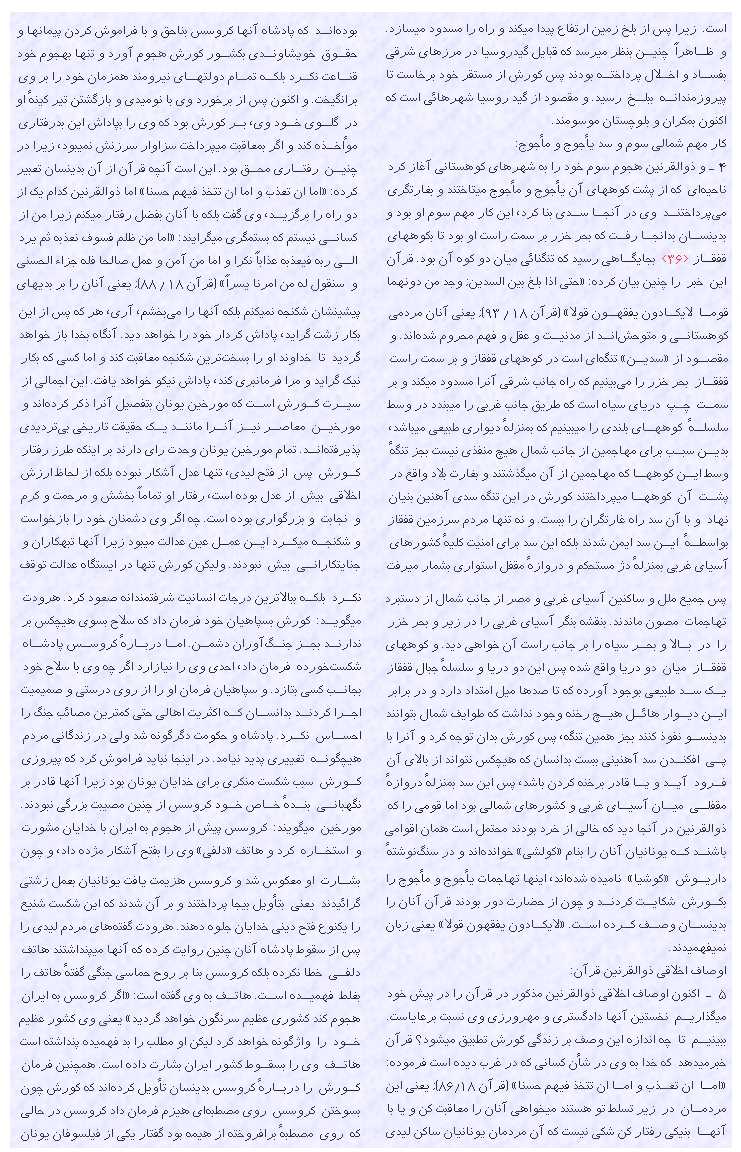 است. زیرا پس از بلخ زمین ارتفاع پیدا میکند و راه را مسدود میسازد.
و ظـاهراً چنیـن بنظر میرسد که قبایل گیدروسیا در مرزهای شرقی
بفسـاد و اخـلال پرداختـه بودند پس کورش از مستقر خود برخاست تا
پیروزمندانـه ببلـخ رسید. و مقصود از گید روسیا شهرهائی است که
اکنون بمکران و بلوچستان موسومند.
کار مهم شمالی سوم و سد یأجوج و مأجوج:
۴ ـ و ذوالقرنین هجوم سوم خود را به شهرهای کوهستانی آغاز کرد
ناحیه‌ای که از پشت کوههای آن یأجوج و مأجوج میتاختند و بغارتگری
می‌پرداختنـد وی در آنجـا سـدی بنا کرد، این کار مهم سوم او بود و
بدینسـان بدانجا رفـت که بحر خزر بر سمت راست او بود تا بکوههای
قفقـاز <۳۶> بجایگـاهی رسید که تنگنائی میان دو کوه آن بود. قرآن
این خبر را چنین بیان کرده: «حتی اذا بلغ بین السدین: وجد من دونهما
قومـا لایکـادون یفقهـون قولا» (قرآن ۱۸ / ۹۳): یعنی آنان مردمی
کوهستانـی و متوحش‌انـد از مدنیـت و عقل و فهم محروم شده‌اند. و
مقصـود از «سدیـن» تنگه‌ای است در کوههای قفقاز و بر سمت راست
قفقـاز بحر خزر را می‌بینیم که راه جانب شرقی آنرا مسدود میکند و بر
سمـت چـپ دریای سیاه است که طریق جانب غربی را میبندد در وسط
سلسلـهٔ کوههـای بلندی را میبینیم که بمنزلهٔ دیواری طبیعی میباشد،
بدیـن سبـب برای مهاجمین از جانب شمال هیچ منفذی نیست بجز تنگهٔ
وسط ایـن کوههـا که مهاجمین از آن میگذشتند و بغارت بلاد واقع در
پشـت آن کوههـا میپرداختند کورش در این تنگه سدی آهنین بنیان
نهاد و با آن سد راه غارتگران را ببست. و نه تنها مردم سرزمین قفقاز
بواسطـهٔ ایـن سد ایمن شدند بلکه این سد برای امنیت کلیهٔ کشورهای
آسیای غربی بمنزلهٔ دژ مستحکم و دروازهٔ مقفل استواری بشمار میرفت
پس جمیع ملل و ساکنین آسیای غربی و مصر از جانب شمال از دستبرد
تهاجمات مصون ماندند. بنقشه بنگر آسیای غربی را در زیر و بحر خزر
را در بـالا و بحـر سیاه را بر جانب راست آن خواهی دید. و کوههای
قفقـاز میان دو دریا واقع شده پس این دو دریا و سلسلهٔ جبال قفقاز
یـک سـد طبیعی بوجود آورده که تا صدها میل امتداد دارد و در برابر
ایـن دیـوار هائـل هیـچ رخنه وجود نداشت که طوایف شمال بتوانند
بدینسـو نفوذ کنند بجز همین تنگه، پس کورش بدان توجه کرد و آنرا با
پـی افکنـدن سد آهنینی ببست بدانسان که هیچکس نتواند از بالای آن
فـرود آیـد و یـا قادر برخنه کردن باشد، پس این سد بمنزلهٔ دروازهٔ
مقفلـی میـان آسیـای غربی و کشورهای شمالی بود اما قومی را که
ذوالقرنین در آنجا دید که خالی از خرد بودند محتمل است همان اقوامی
باشنـد کـه یونانیان آنان را بنام «کولشی» خوانده‌اند و در سنگ‌نوشتهٔ
داریـوش «کوشیا» نامیده شده‌اند، اینها تهاجمات یأجوج و مأجوج را
بکـورش شکایـت کردنـد و چون از حضارت دور بودند قرآن آنان را
بدینسـان وصـف کـرده اسـت. «لایکـادون یفقهون قولا» یعنی زبان
نمیفهمیدند.
اوصاف اخلاقی ذوالقرنین قرآن:
۵ ـ اکنون اوصاف اخلاقی ذوالقرنین مذکور در قرآن را در پیش خود
میگذاریـم نخستین آنها دادگستری و مهرورزی وی نسبت برعایاست.
ببینیـم تا چه اندازه این وصف بر زندگی کورش تطبیق میشود؟ قرآن
خبرمیدهد که خدا به وی در شأن کسانی که در غرب دیده است فرموده:
«امـا ان تعـذب و امـا ان تتخذ فیهم حسنا» (قرآن ۸۶/۱۸): یعنی این
مردمـان در زیر تسلط تو هستند میخواهی آنان را معاقبت کن و یا با
آنهـا بنیکی رفتار کن شکی نیست که آن مردمان یونانیان ساکن لیدی
بوده‌انـد که پادشاه آنها کروسس بناحق و با فراموش کردن پیمانها و
حقـوق خویشاونـدی بکشـور کورش هجوم آورد و تنها بهجوم خود
قنـاعت نکـرد بلکـه تمـام دولتهـای نیرومند همزمان خود را بر وی
برانگیخت. و اکنون پس از برخورد وی با نومیدی و بازگشتن تیر کینهٔ او
در گلـوی خـود وی، بـر کورش بود که وی را بپاداش این بدرفتاری
موأخـذه کند و اگر بمعاقبت میپرداخت سزاوار سرزنش نمیبود، زیرا در
چنیـن رفتـاری محـق بود. این است آنچه قرآن از آن بدینسان تعبیر
کرده: «اما ان تعذب و اما ان تتخذ فیهم حسنا» اما ذوالقرنین کدام یک از
دو راه را برگزیـد، وی گفت بلکه با آنان بفضل رفتار میکنم زیرا من از
کسانـی نیستم که بستمگری میگرایند: «اما من ظلم فسوف نعذبه ثم یرد
الـی ربه فیعذبه عذاباً نکرا و اما من آمن و عمل صالحا فله جزاء الحسنی
و سنقول له من امرنا یسراً» (قرآن ۱۸ / ۸۸): یعنی آنان را بر بدیهای
پیشینشان شکنجه نمیکنم بلکه آنها را می‌بخشم، آری، هر که پس از این
بکار زشت گراید، پاداش کردار خود را خواهد دید. آنگاه بخدا باز خواهد
گردید تا خداوند او را بسخت‌ترین شکنجه معاقبت کند و اما کسی که بکار
نیک گراید و مرا فرمانبری کند، پاداش نیکو خواهد یافت. این اجمالی از
سیـرت کـورش اسـت که مورخین یونان بتفصیل آنرا ذکر کرده‌اند و
مورخیـن معاصـر نیـز آنـرا ماننـد یـک حقیقت تاریخی بی‌تردیدی
پذیرفته‌انـد. تمام مورخین یونان وحدت رای دارند بر اینکه طرز رفتار
کـورش پس از فتح لیدی، تنها عدل آشکار نبوده بلکه از لحاظ ارزش
اخلاقی بیش از عدل بوده است، رفتار او تماماً بخشش و مرحمت و کرم
و نجابت و بزرگواری بوده است. چه اگر وی دشمنان خود را بازخواست
و شکنجـه میکـرد ایـن عمـل عین عدالت میبود زیرا آنها تبهکاران و
جنایتکارانـی بیش نبودند. ولیکن کورش تنها در ایستگاه عدالت توقف
نکـرد بلکـه ببالاترین درجات انسانیت شرفتمندانه صعود کرد. هرودت
میگویـد: کورش بسپاهیان خود فرمان داد که سلاح بسوی هیچکس بر
ندارنـد بجـز جنـگ‌آوران دشمـن. امـا دربـارهٔ کروسـس پادشـاه
شکست‌خورده فرمان داد، احدی وی را نیازارد اگر چه وی با سلاح خود
بجانـب کسی بتازد. و سپاهیان فرمان او را از روی درستی و صمیمیت
اجـرا کردنـد بدانسـان کـه اکثریت اهالی حتی کمترین مصائب جنگ را
احسـاس نکـرد. پادشاه و حکومت دگرگونه شد ولی در زندگانی مردم
هیچگونـه تغییری پدید نیامد. در اینجا نباید فراموش کرد که پیروزی
کـورش سبب شکست منکری برای خدایان یونان بود زیرا آنها قادر بر
نگهبانـی بنـدهٔ خـاص خـود کروسس از چنین مصیبت بزرگی نبودند.
مورخین میگویند: کروسس پیش از هجوم به ایران با خدایان مشورت
و استخـاره کرد و هاتف «دلفی» وی را بفتح آشکار مژده داد، و چون
بشـارت او معکوس شد و کروسس هزیمت یافت یونانیان بعمل زشتی
گرائیدند یعنی بتأویل بیجا پرداختند و بر آن شدند که این شکست شنیع
را یکنوع فتح دینی خدایان جلوه دهند. هرودت گفته‌های مردم لیدی را
پس از سقوط پادشاه آنان چنین روایت کرده که آنها میپنداشتند هاتف
دلفـی خطا نکرده بلکه کروسس بنا بر روح حماسی جنگی گفتهٔ هاتف را
بغلط فهمیـده اسـت. هاتـف به وی گفته است: «اگر کروسس به ایران
هجوم کند کشوری عظیم سرنگون خواهد گردید» یعنی وی کشور عظیم
خـود را واژگونه خواهد کرد لیکن او مطلب را بد فهمیده پنداشته است
هاتف وی را بسقـوط کشور ایران بشارت داده است. همچنین فرمان
کـورش را دربـارهٔ کروسس بدینسان تأویل کرده‌اند که کورش چون
بسوختن کروسس روی مصطبه‌ای هیزم فرمان داد کروسس در حالی
که روی مصطبهٔ برافروخته از هیمه بود گفتار یکی از فیلسوفان یونان